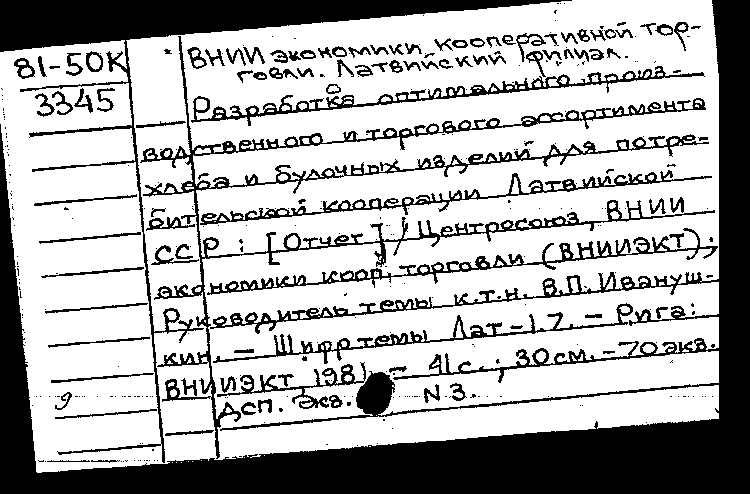 81-50К
3345
ВНИИ экономики кооперативной тор-
говли. Латвийский филиал.
Разработка оптимального произ-
водственного и торгового ассортимента
хлеба и булочных изделий для потре-
бительской кооперации Латвийской
ССР : [Отчет] / Центросоюз, ВНИИ
экономики кооп. торговли (ВНИИЭКТ);
Руководитель темы к.т.н. В.П. Ивануш-
кин. — Шифр темы Лат-1.7. — Рига:
ВНИИЭКТ, 1981. — 41с.; 30см. — 70экз.
Дсп. Экз. N 3.
9